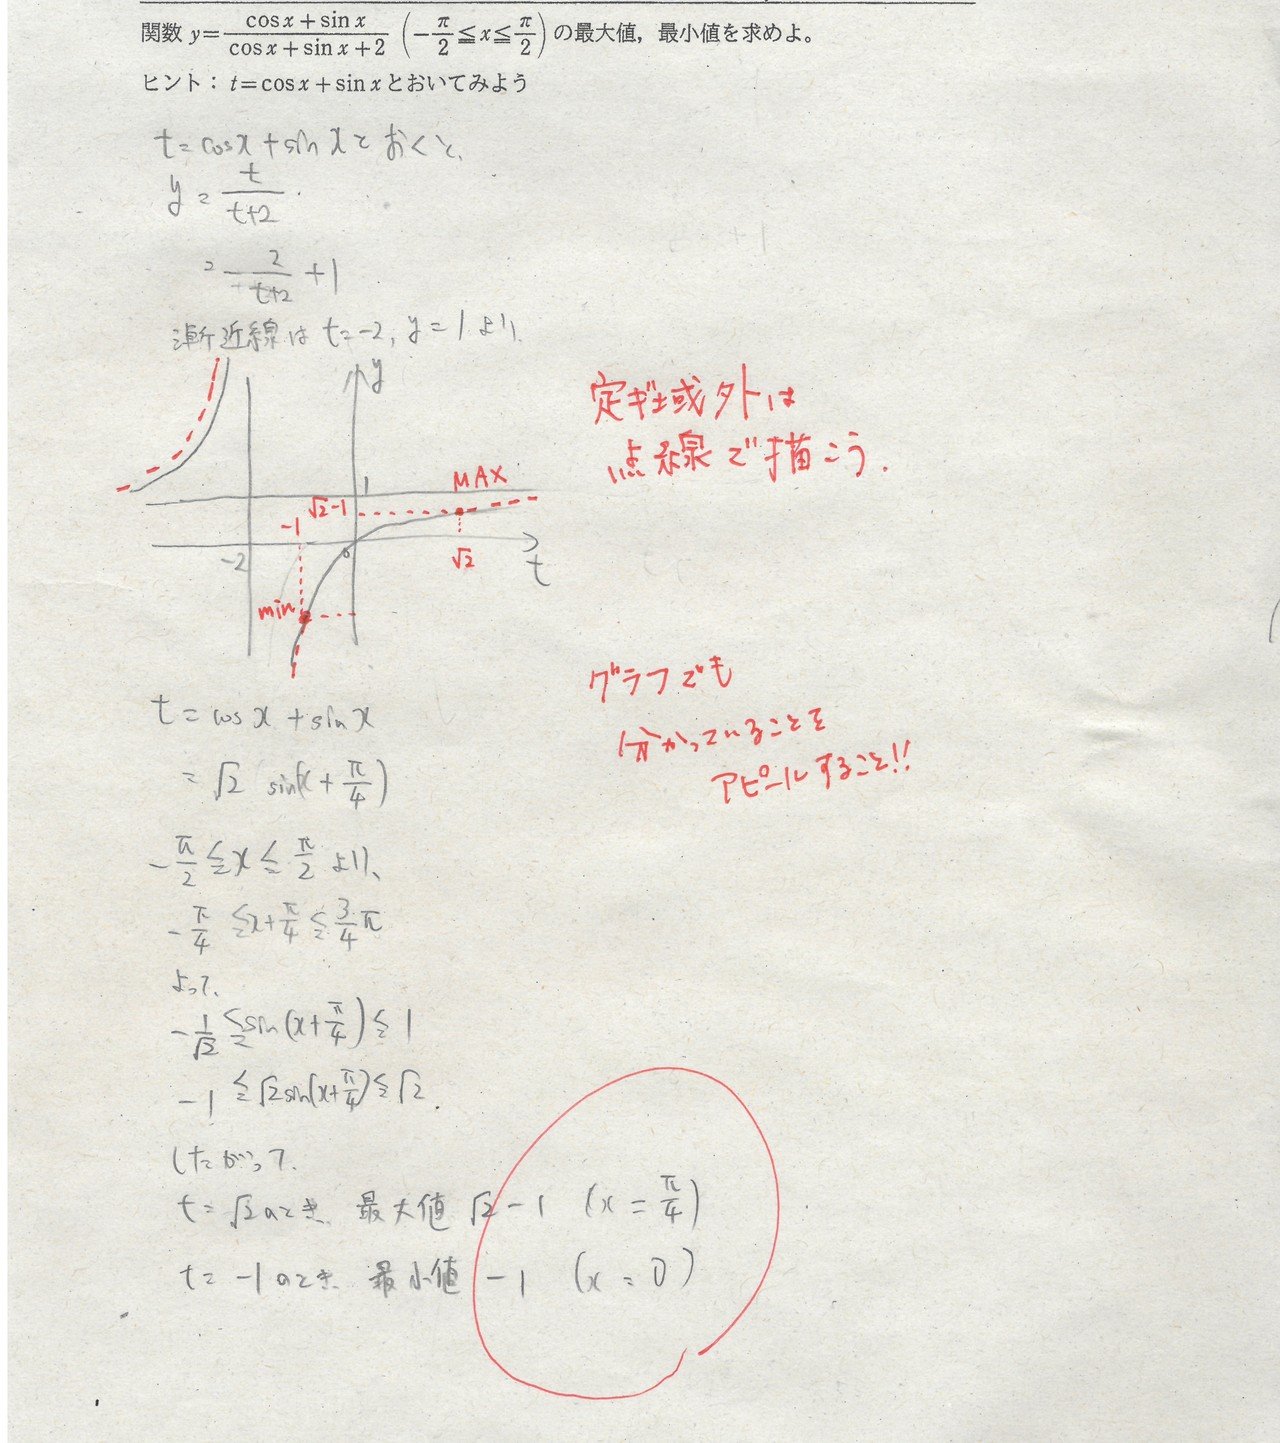 関数 y=(cos x+sin x)/(cos x+sin x+2) (-π/2≦x≦π/2) の最大値，最小値を求めよ。
ヒント：t=cos x+sin xとおいてみよう
t=cosx+sin xとおくと、
y=t/(t+2)
=-2/(t+2)+1
漸近線は t=-2, y=1より
定ギ域外は
点線で描こう.
y
1
MAX
√2-1
-1
-2
0
√2
t
min
グラフでも
分かっていることを
アピールすること!!
t=cosx+sinx
=√2 sin(x+π/4)
-π/2≦x≦π/2より、
-π/4≦x+π/4≦3/4π
よって、
-1/√2≦sin(x+π/4)≦1
-1≦√2sin(x+π/4)≦√2.
したがって、
t=√2のとき、最大値 √2-1 (x=π/4)
t=-1のとき、最小値 -1 (x=0)